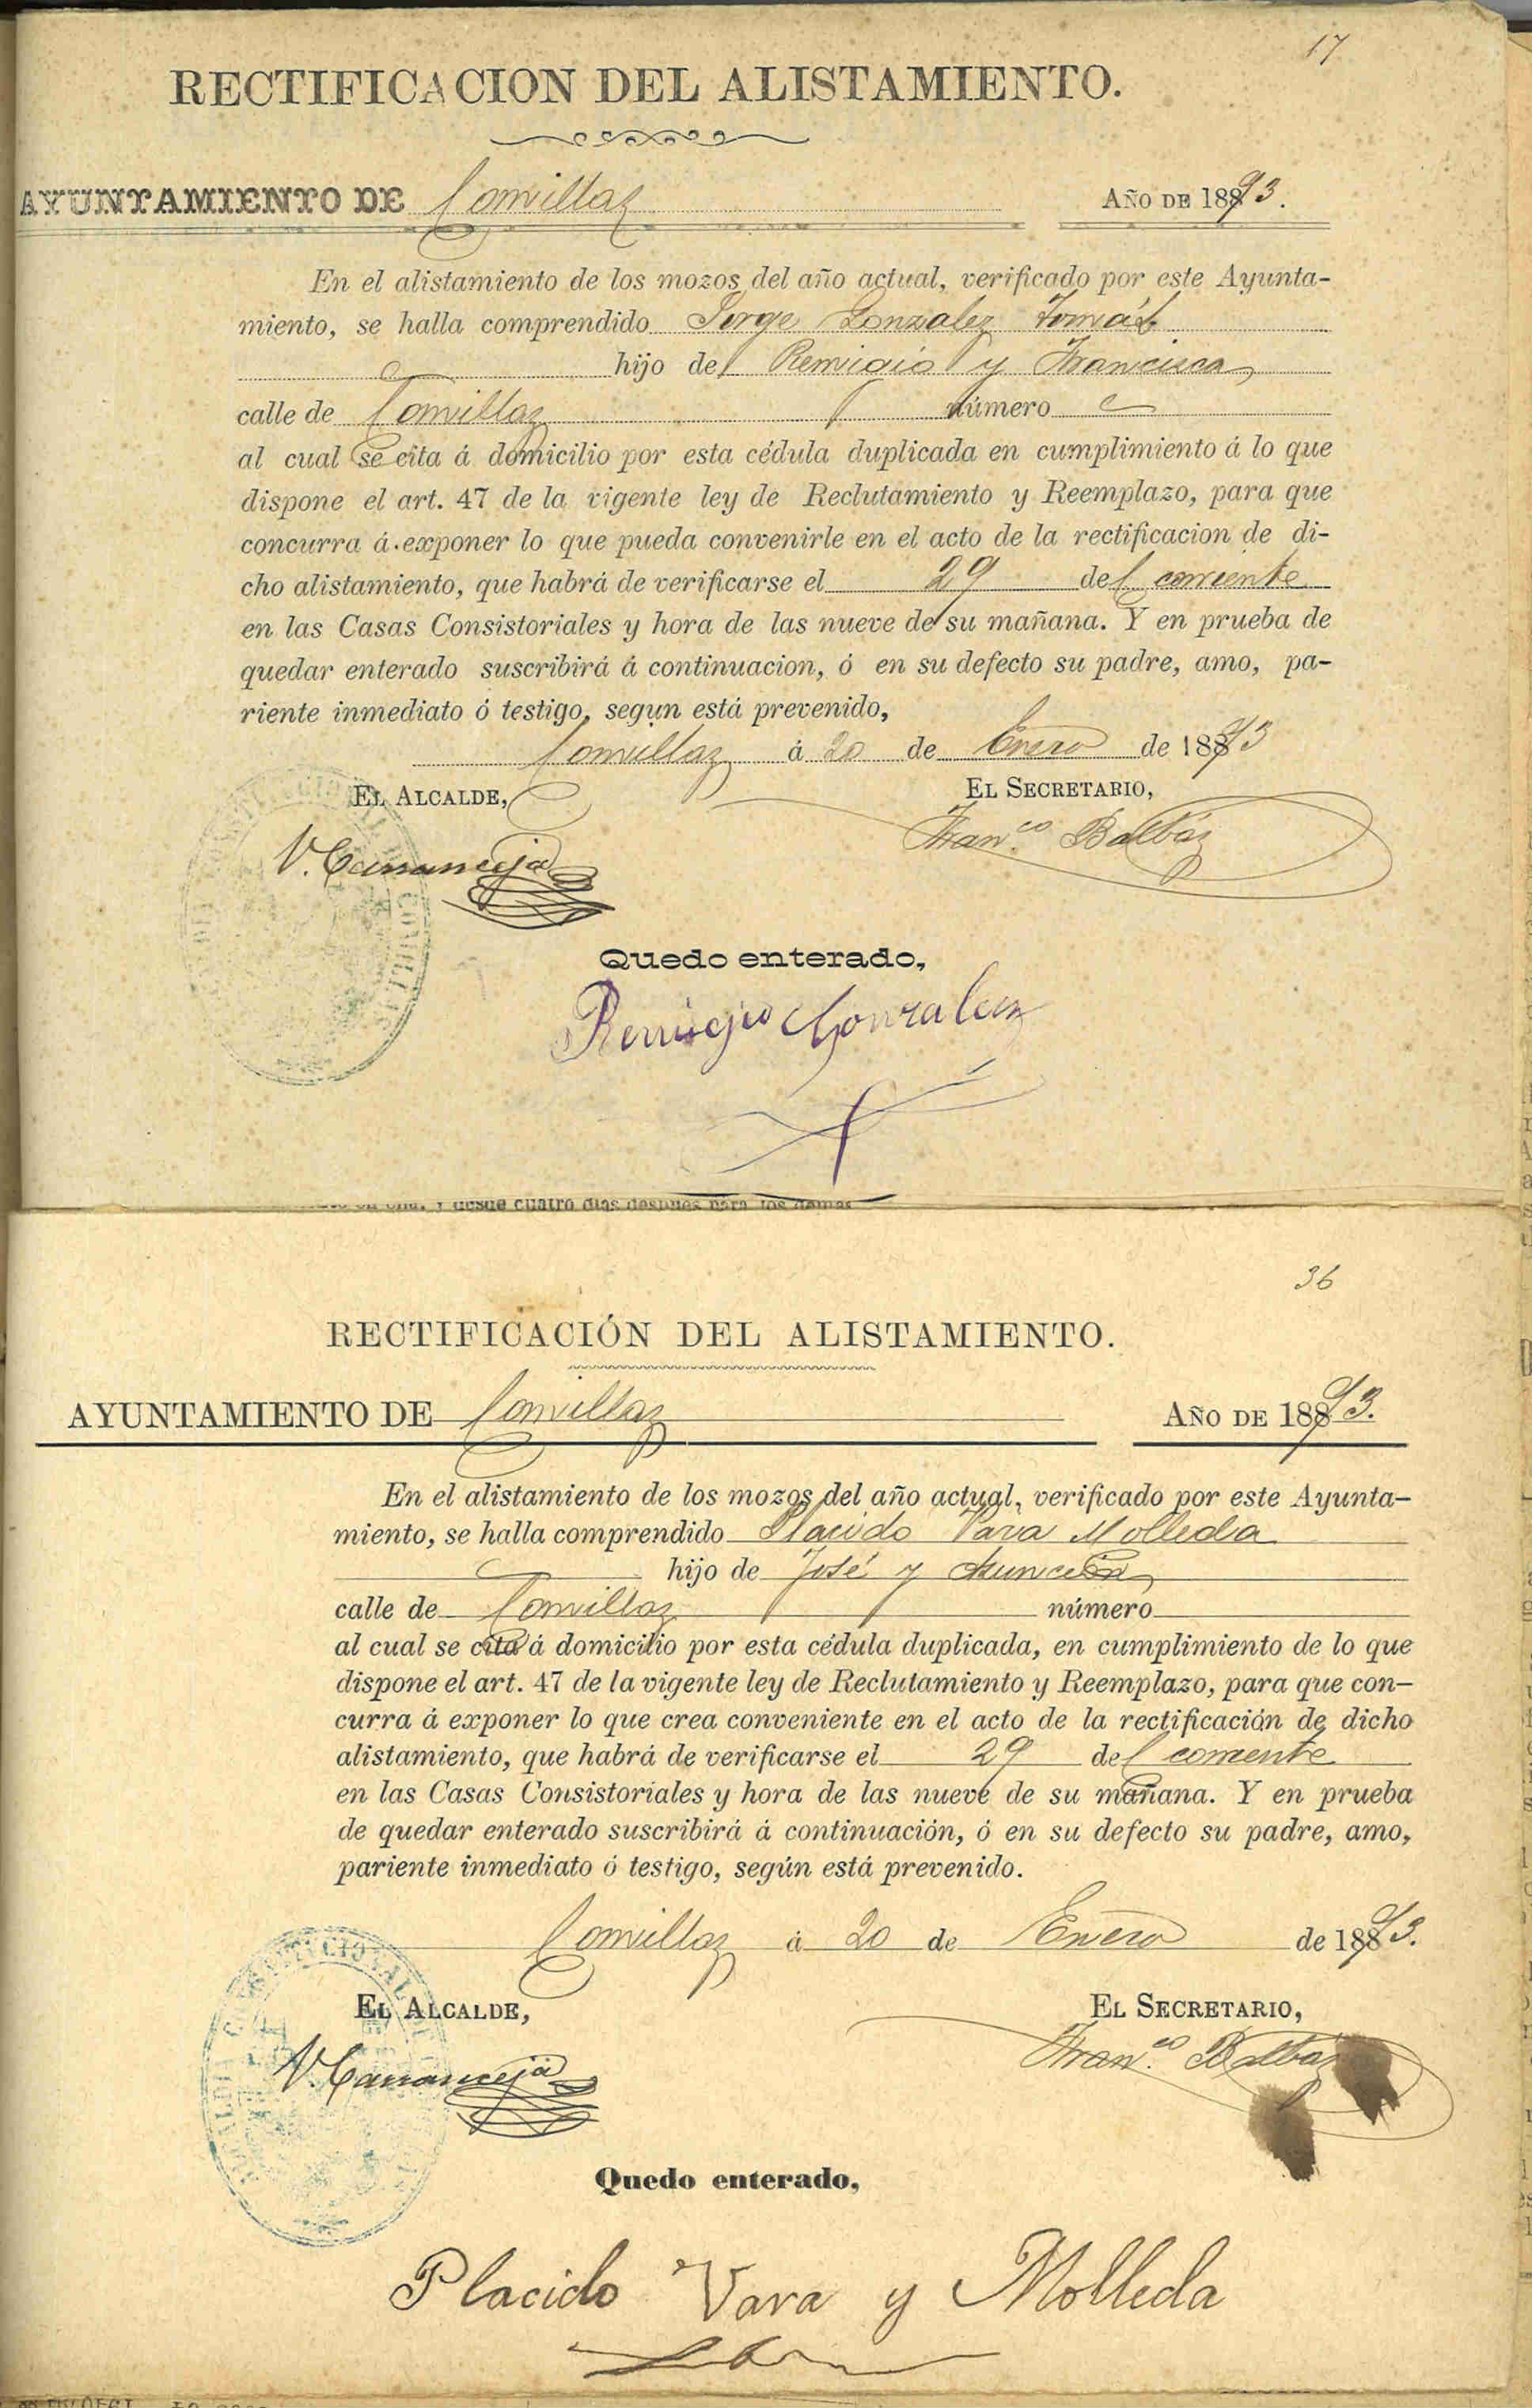 17
RECTIFICACION DEL ALISTAMIENTO.
AYUNTAMIENTO DE Comillas AÑO DE 1893.
En el alistamiento de los mozos del año actual, verificado por este Ayunta-
miento, se halla comprendido Jorge Gonzalez Tomás
hijo de Remigio y Francisca
calle de Comillas número
al cual se cita á domicilio por esta cédula duplicada en cumplimiento á lo que
dispone el art. 47 de la vigente ley de Reclutamiento y Reemplazo, para que
concurra á exponer lo que pueda convenirle en el acto de la rectificacion de di-
cho alistamiento, que habrá de verificarse el 29 del corriente
en las Casas Consistoriales y hora de las nueve de su mañana. Y en prueba de
quedar enterado suscribirá á continuacion, ó en su defecto su padre, amo, pa-
riente inmediato ó testigo, segun está prevenido,
Comillas á 20 de Enero de 1893
EL ALCALDE, EL SECRETARIO,
Fran.co Balbás
Quedo enterado,
Remigio Gonzalez
cuatro dias despues para los demas
36
RECTIFICACIÓN DEL ALISTAMIENTO.
AYUNTAMIENTO DE Comillas AÑO DE 1893.
En el alistamiento de los mozos del año actual, verificado por este Ayunta-
miento, se halla comprendido Placido Vara Molleda
hijo de José y Asunción
calle de Comillas número
al cual se cita á domicilio por esta cédula duplicada, en cumplimiento de lo que
dispone el art. 47 de la vigente ley de Reclutamiento y Reemplazo, para que con-
curra á exponer lo que crea conveniente en el acto de la rectificación de dicho
alistamiento, que habrá de verificarse el 29 del corriente
en las Casas Consistoriales y hora de las nueve de su mañana. Y en prueba
de quedar enterado suscribirá á continuación, ó en su defecto su padre, amo,
pariente inmediato ó testigo, según está prevenido.
Comillas á 20 de Enero de 1893.
EL ALCALDE, EL SECRETARIO,
Fran.co Balbás
Quedo enterado,
Placido Vara y Molleda